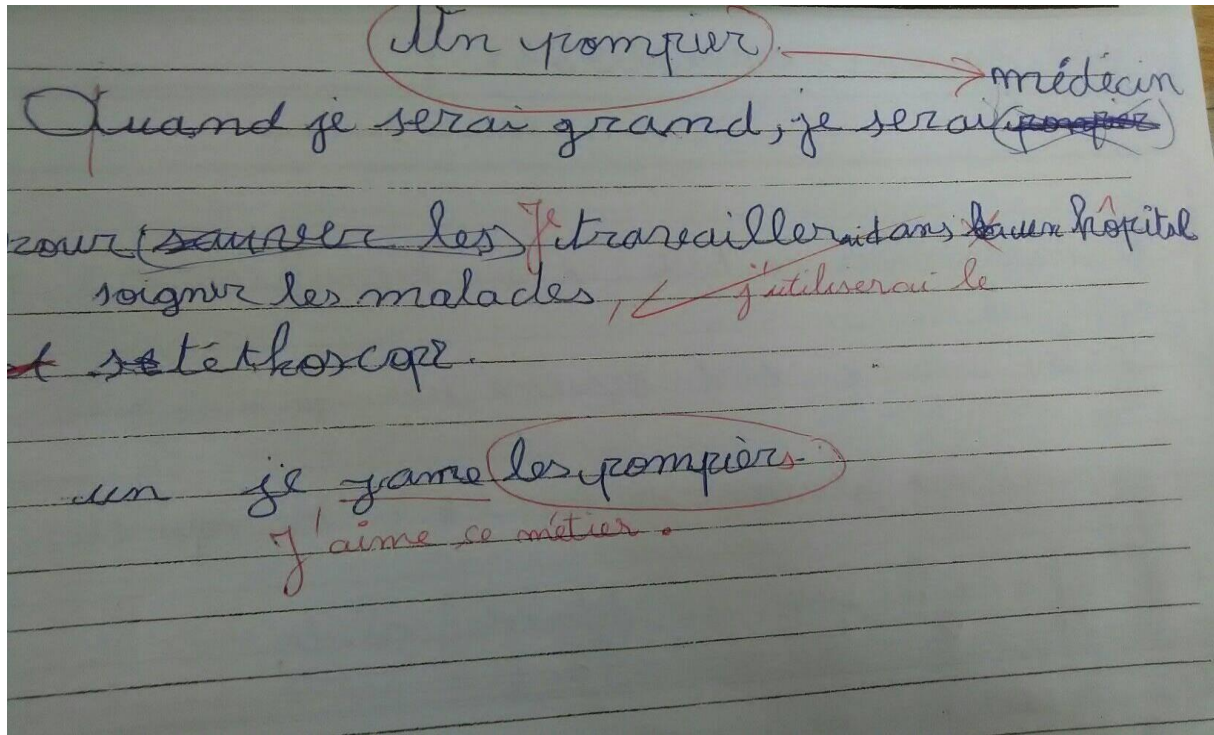 Un pompier.
médécin
Quand je serai grand, je serai pompier
pour sauver les Je travaillerai dans un hôpital
soigner les malades, j'utiliserai le
stéthoscope.
un je jame les pompièrs.
J'aime se métier.